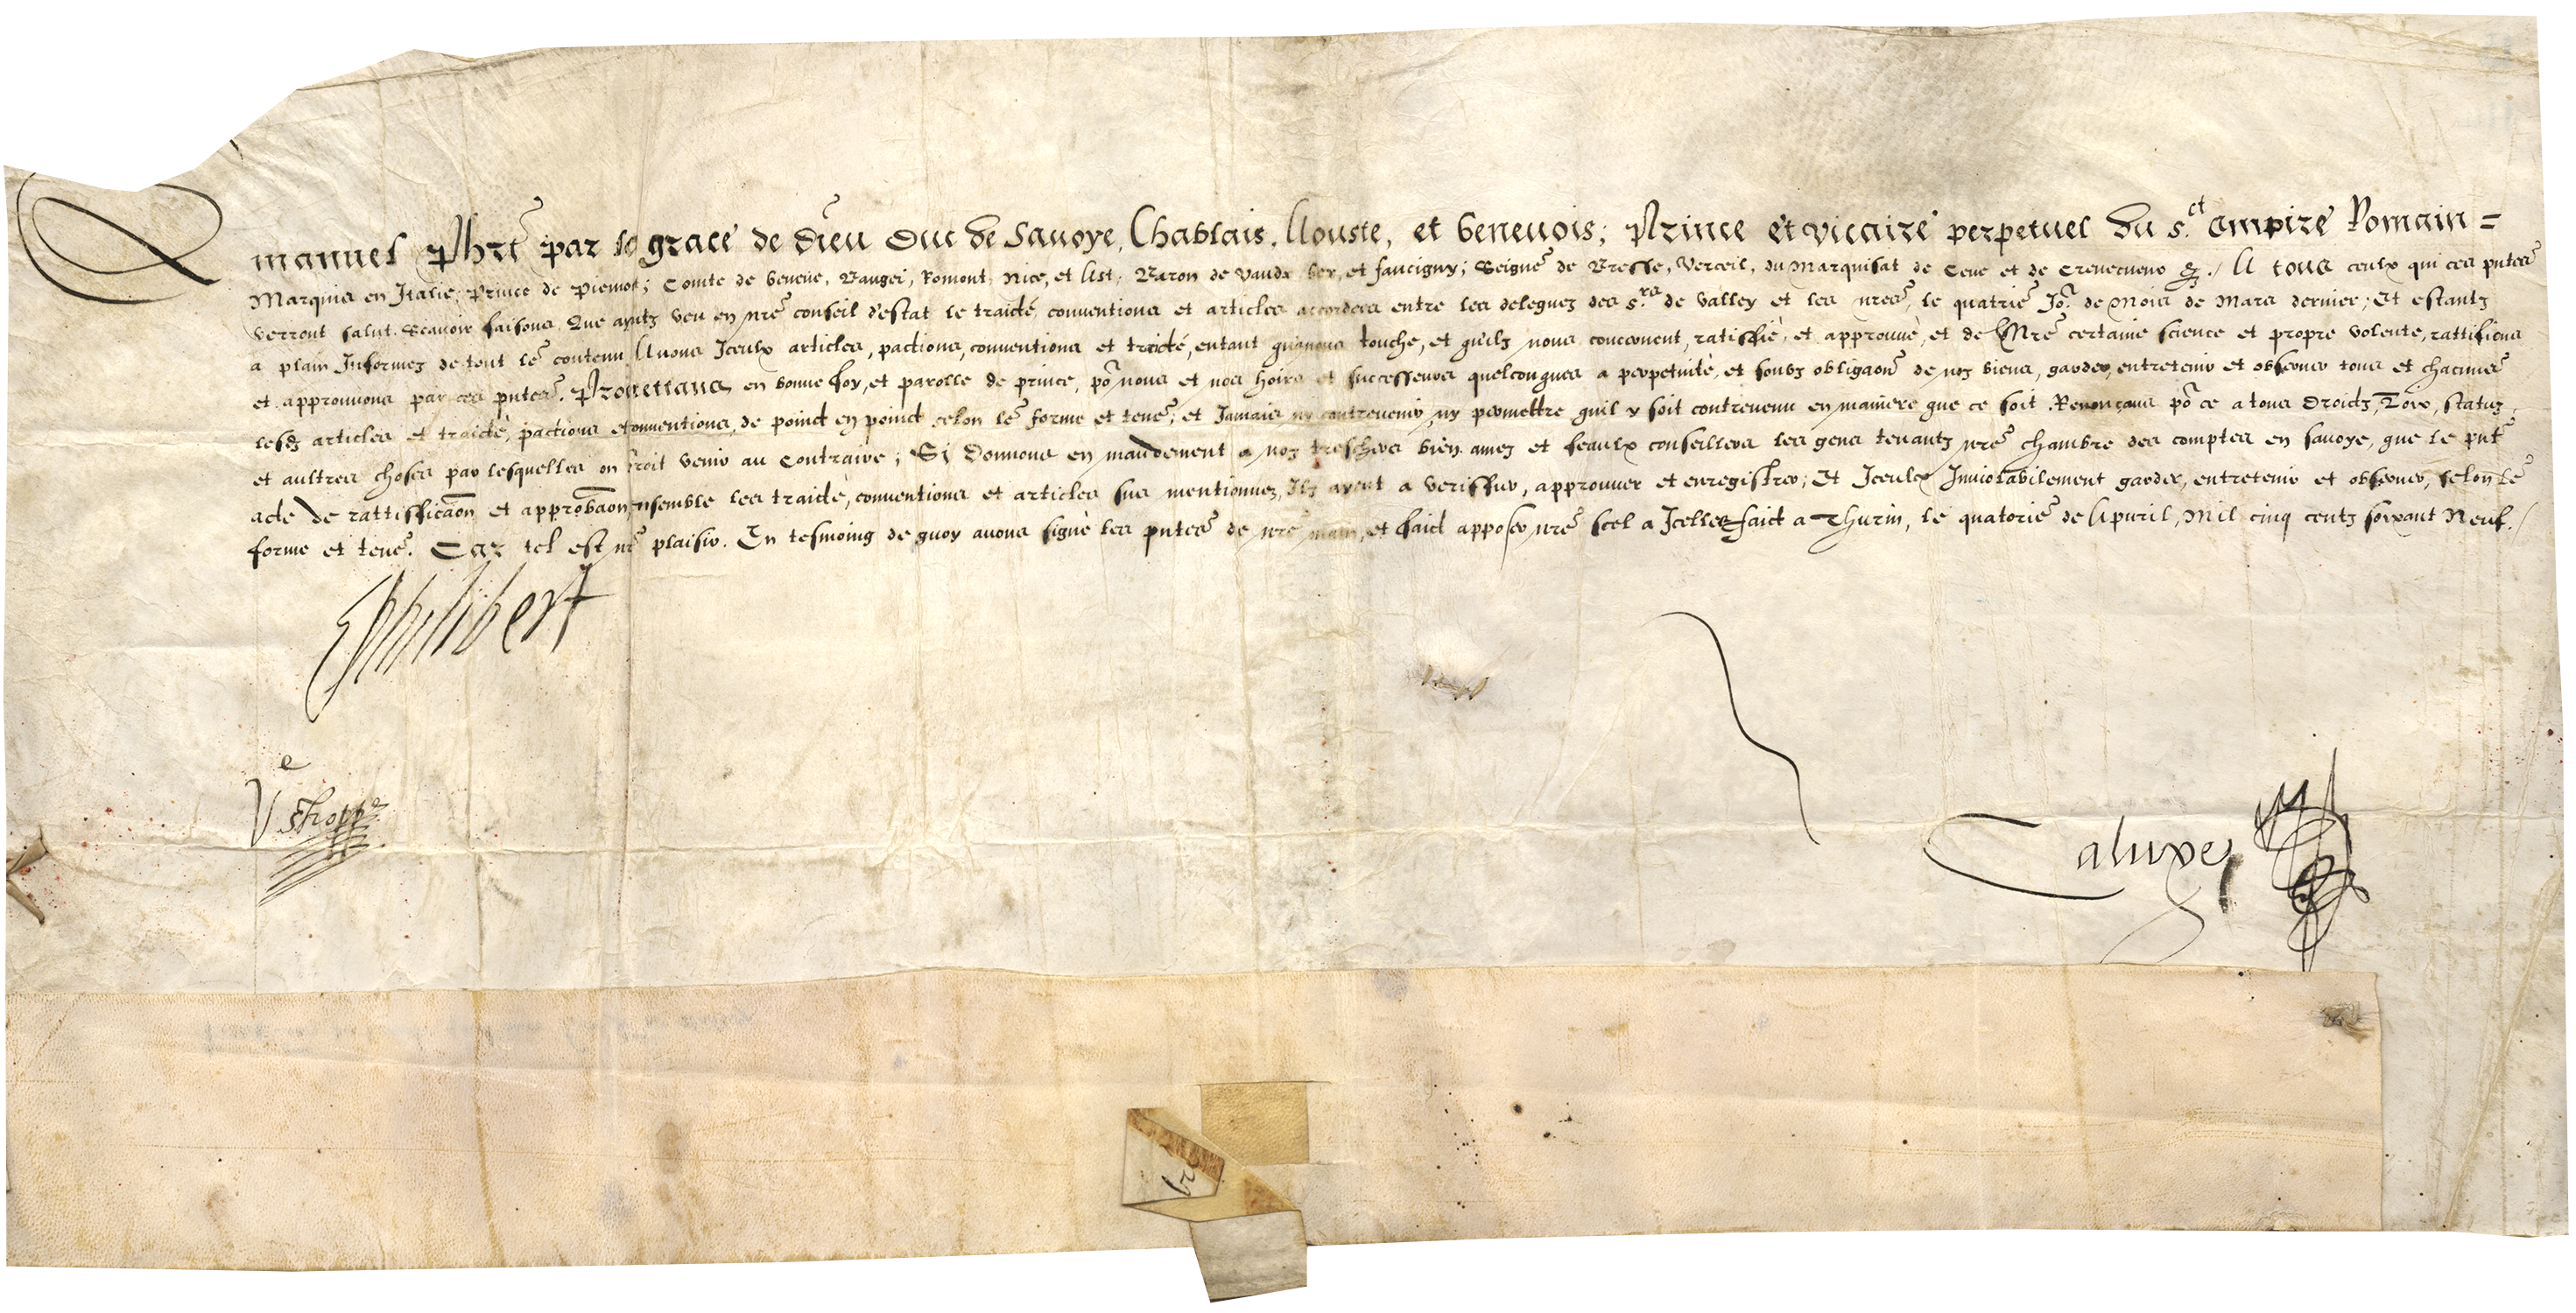 Emanuel Phrt par la grace de dieu Duc de Savoye, Chablais, Aouste, et Genevois; Prince et vicaire perpetuel du s.ct empire Romain =
Marquis en Italie; Prince de piemot; Comte de Geneve, Baugei, Romont, Nice, et Ast, Baron de Vaudx Gex, et faucigny; Seignr de Bresse, Verceil, du Marquisat de Ceve et de &c./ A tous ceulx qui ces pntes
verront salut. Scavoir faisons, Que ayntz veu en nre conseil d'estat le traicté, conventions et articles accordees entre les deleguez des s.rs de Valley et les nres, le quatrie Jor de Mois de Mars dernier; Et estantz
a plain Informez de tout le contenu Avons Iceulx articles, pactions, conventions et traicté, entant qu'a nous touche, et qu'ilz nous concernent, ratiffié, et approuvé, et de Nre certaine science et propre volente, rattifions
et approuvons par ces pntes. Promettans en bonne foy, et parolle de prince, por nous et nos hoirs et successeurs quelconques a perpetuité, et soubz obligaon de noz biens, garder, entretenir et observer tous et chacuns
lesdz articles et traicté, pactions et conventions, de poinct en poinct selon le forme et tenr, et Jamais ny contrevenir, ny permettre quil y soit contrevenu en maniere que ce soit. Renonçans por ce a tous droictz, Loix, statuz,
et aultres choses par lesquelles on iroit venir au Contraire; Si Donnons en mandement a noz treschers bien amez et feaulx conseillers les gens tenantz nre chambre des comptes en savoye, que le pnt
acte de rattifficaon et approbaon, ensemble les traicté, conventions et articles sus mentionnez, Ilz ayent a veriffier, approuver et enregistrer; Et Iceulx Inviolabilement garder, entretenir et observer, selon le
forme et tenr. Car tel est nre plaisir. En tesmoing de quoy avons signé les pntes de nre main, et faict apposer nre scel a Icelles. faict a Thurin, le quatorie de Apvril, Mil cinq cents soixant Neuf./
EPhilibert
Caluxe